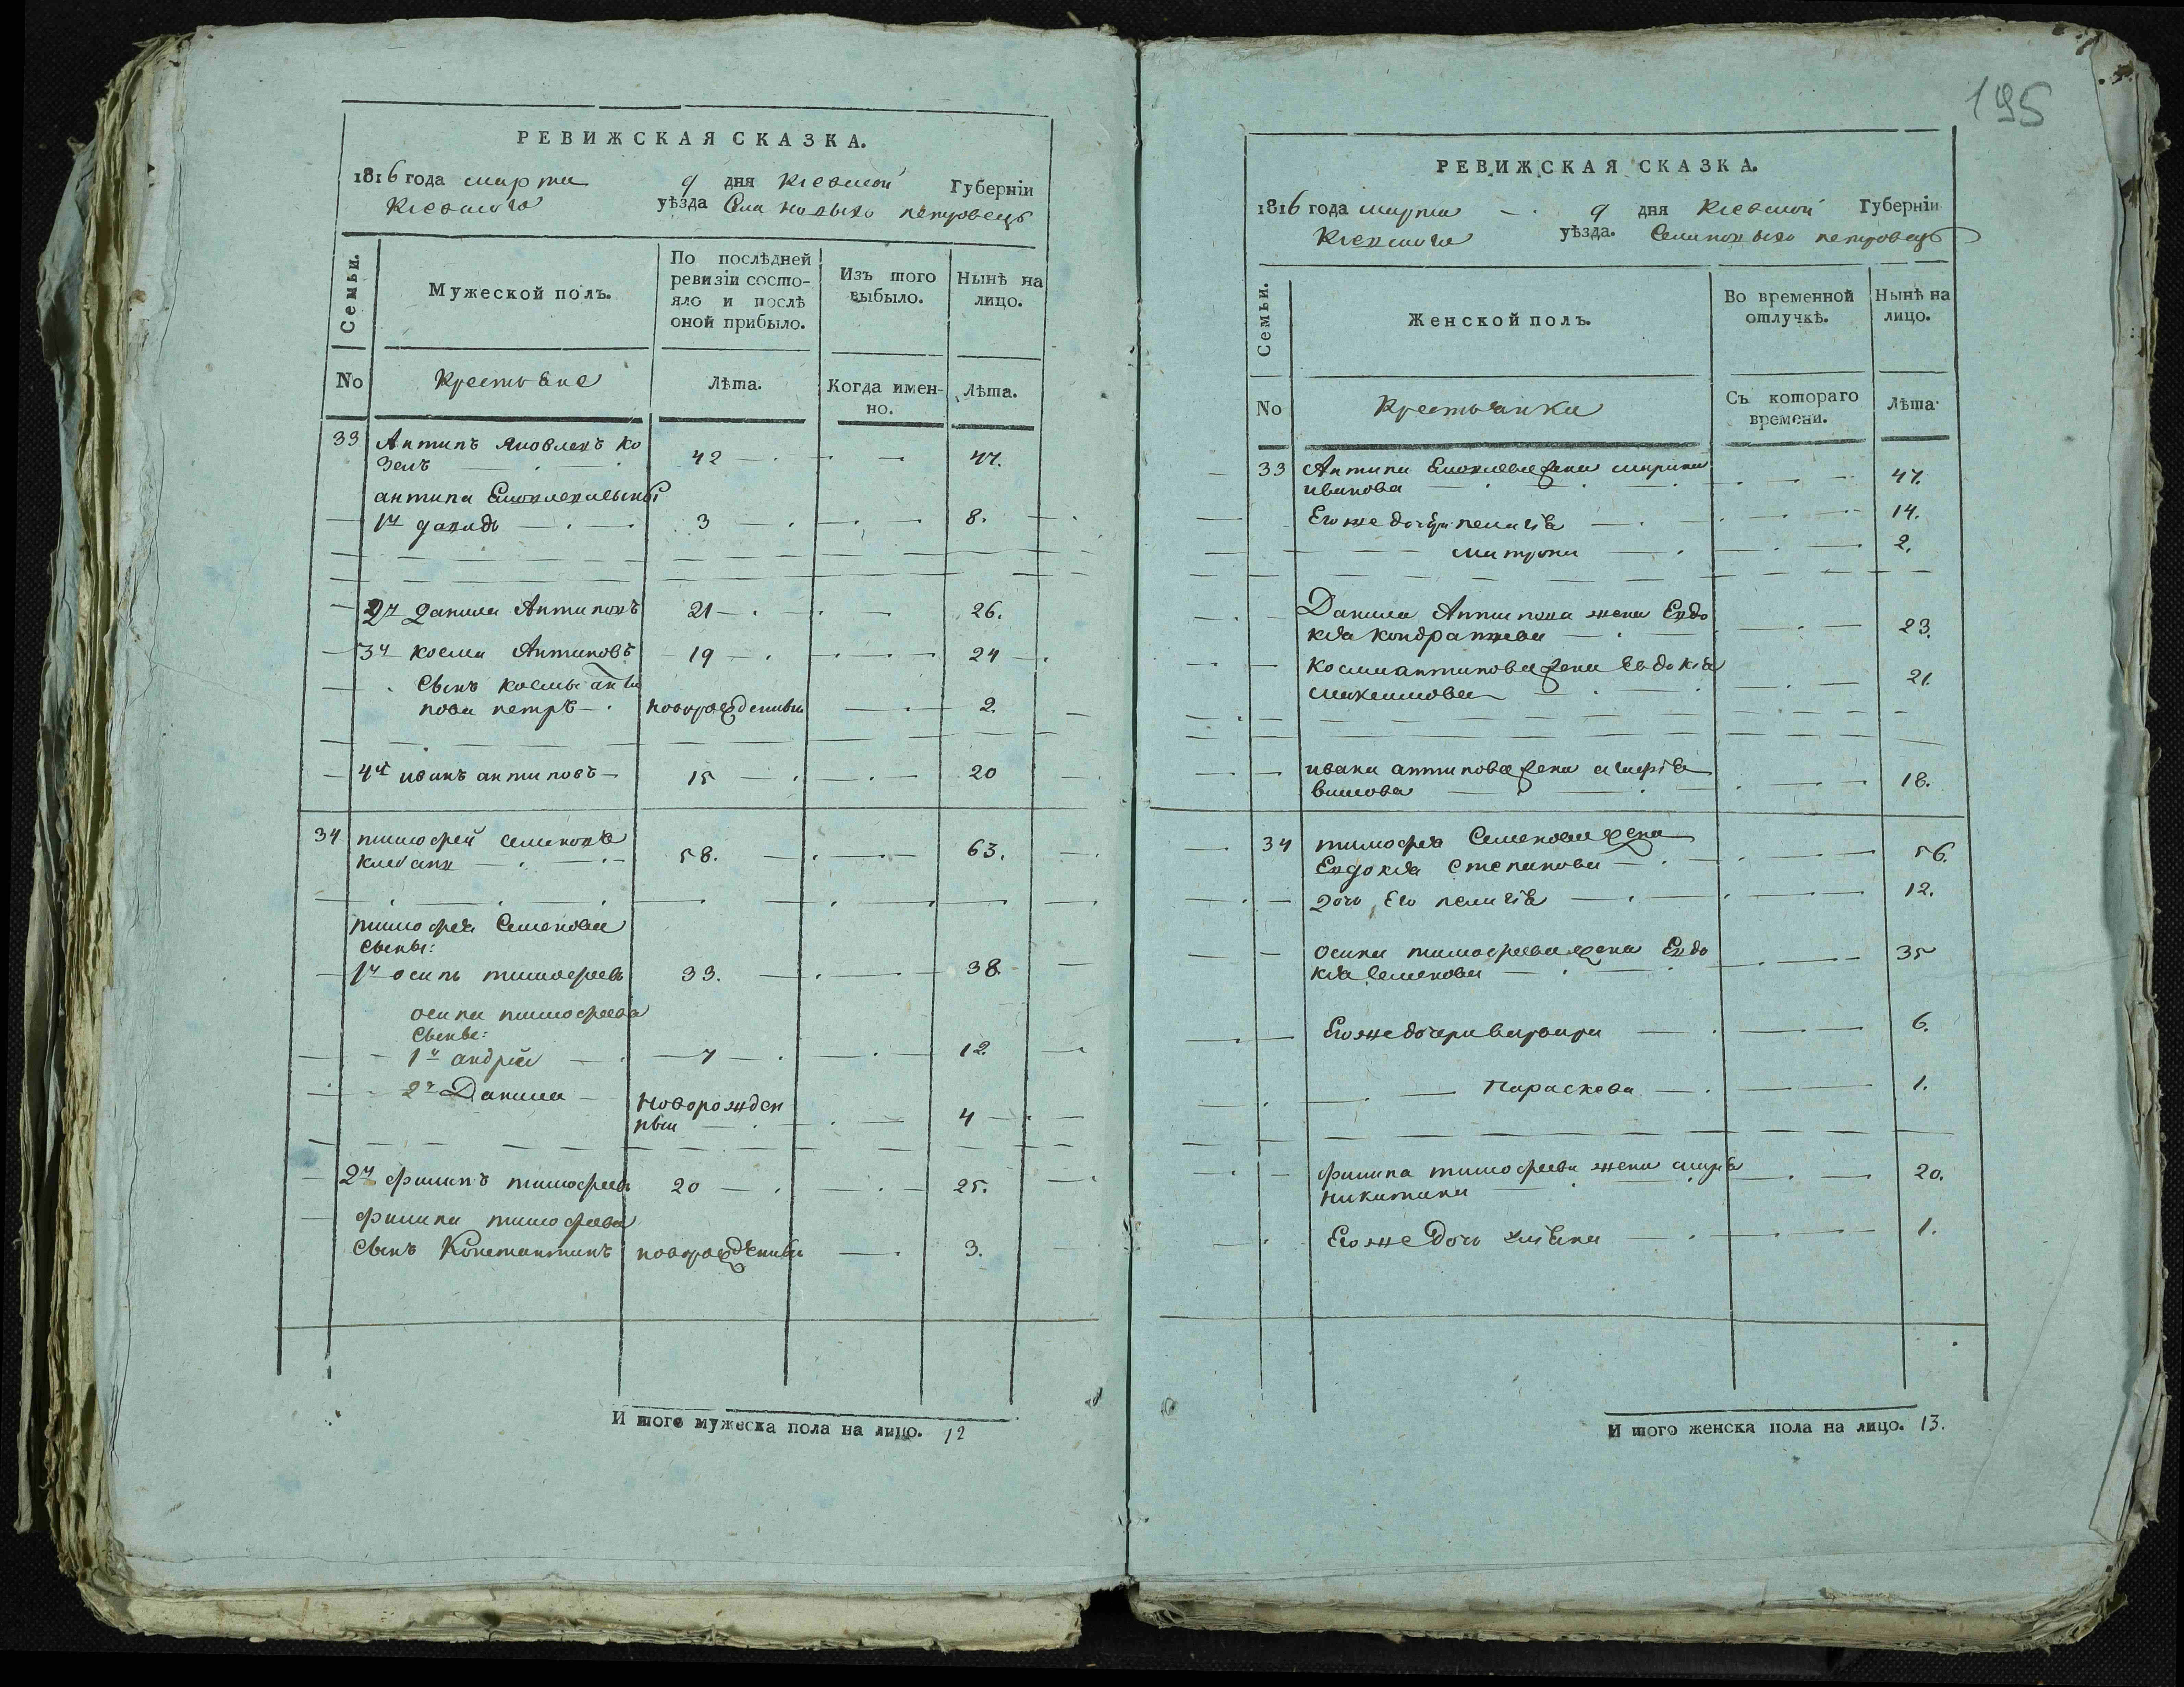 РЕВИЖСКАЯ СКАЗКА.
1816 года марта 9 дня Киевской Губерніи
Киевского уѣзда Села новыхъ петровецъ
Семьи.
Мужеской полъ.
По послѣдней ревизіи состо-
яло и послѣ оной прибыло.
Изъ того выбыло.
Нынѣ на лицо.
No Крестьяне Лѣта. Когда имен-
но. Лѣта.
33 Антипъ Яковлевъ Ко
зелъ 42 47.
антипа Яковлева сыны
1й давидъ 3 8.
2й Данила Антиповъ 21 26.
3й косма Антиповъ 19 24
Сынъ космы анти
пова петръ новорожденный 2.
4й иванъ антиповъ 15 20
34 тимофей семеновъ
58. 63.
тимофея Семенова
сыны:
1й осипъ тимофеевъ 33. 38.
осипа тимофеева
Сыны:
1й андрей 7 12.
2й Данила Новорожден
ный 4
2й филипъ тимофеевъ 20 25.
филипа тимофеева
Сынъ Константинъ новорожденный 3.
И того мужеска пола на лицо. 12
195
РЕВИЖСКАЯ СКАЗКА.
1816 года марта 9 дня Киевской Губерніи
Киевского уѣзда. Села новыхъ петровецъ
Семьи.
Женской полъ.
Во временной отлучкѣ.
Нынѣ на лицо.
No Крестьянки Съ котораго
времени. Лѣта.
33 Антипа Яковлева жена марина
иванова 47.
Его же дочери пелагія 14.
матрона 2.
Данила Антипова жена Евдо
кія кондратева 23.
космы антипова жена Евдокія
максимова 21.
ивана антипова жена
18.
34 тимофея Семенова жена
Евдокія Степанова 56.
Дочь Его пелагія 12.
осипа тимофеева жена Евдо
кія семенова 35
Его же дочери варвара 6.
Параскева 1.
филипа тимофеева жена марія
никитина 20.
Его же Дочь 1.
И того женска пола на лицо. 13.